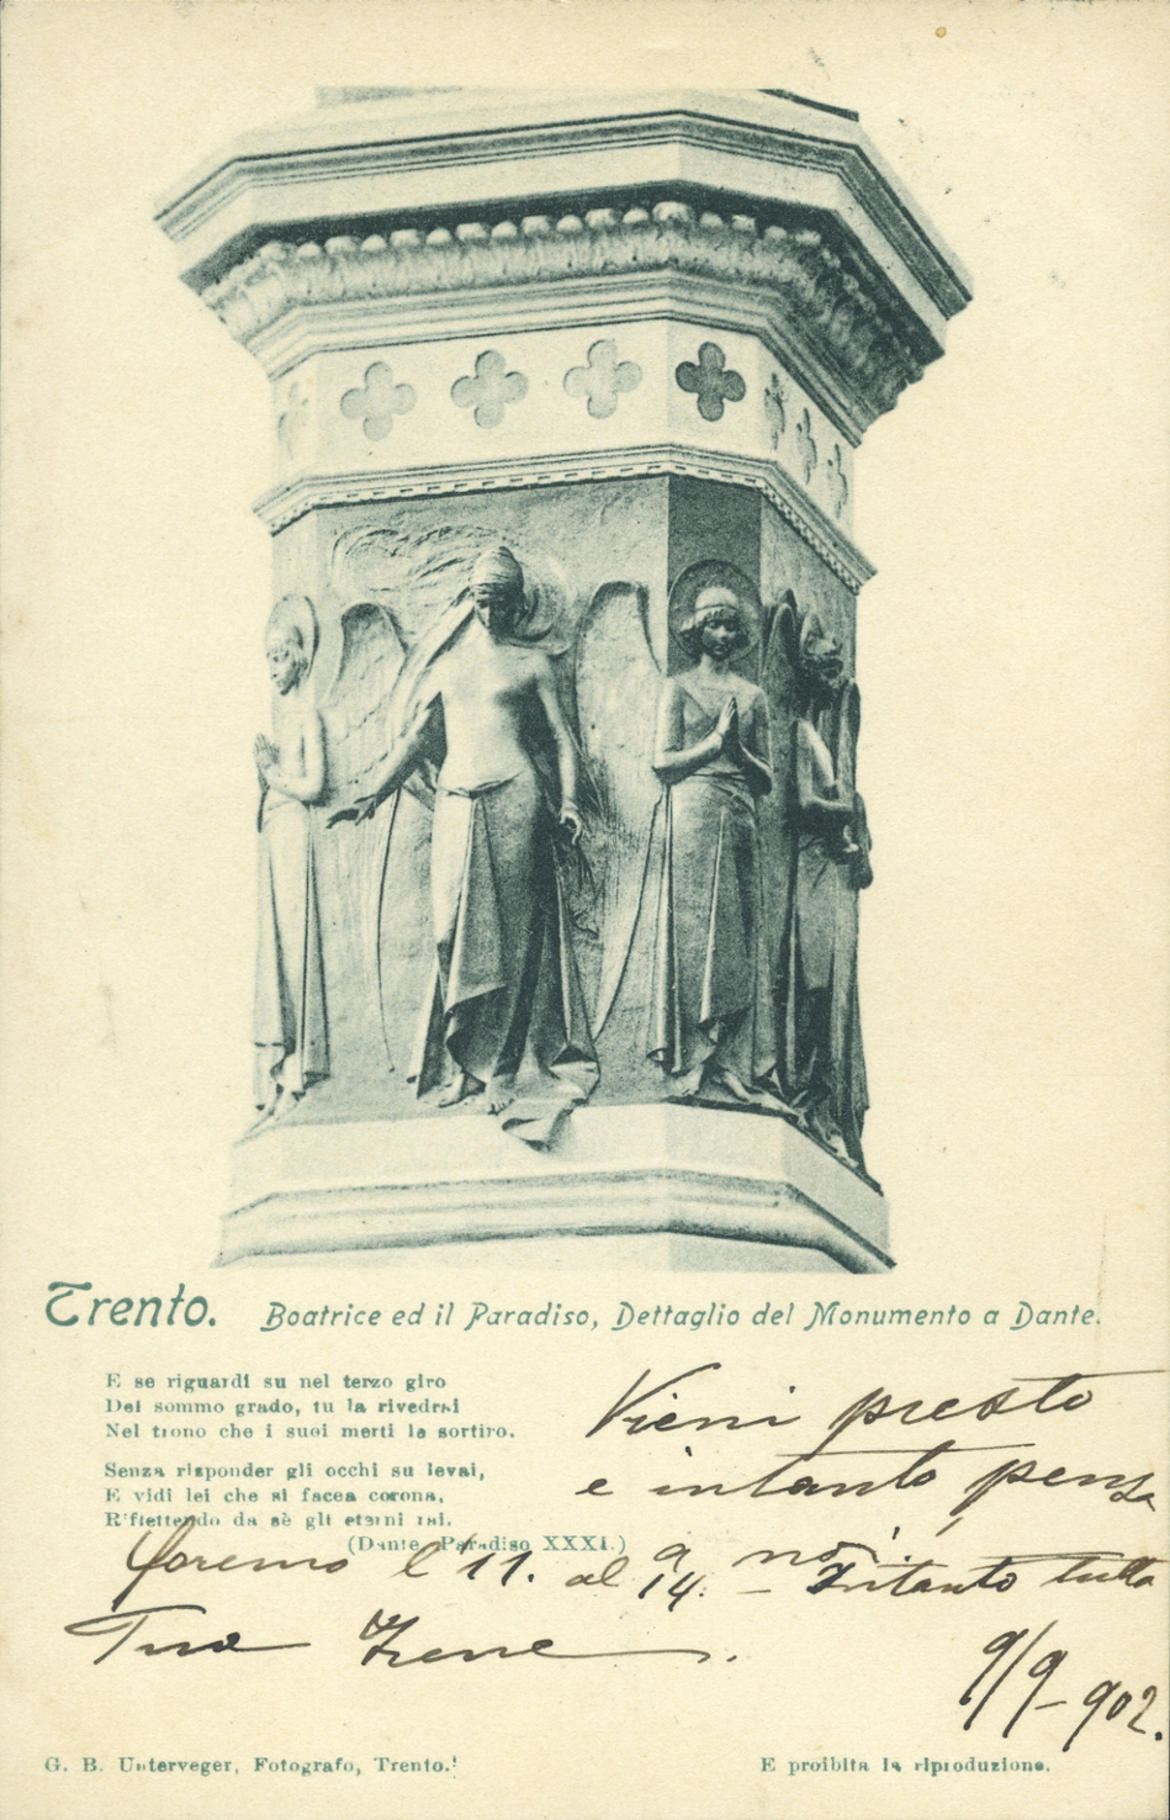 Trento. Boatrice ed il Paradiso, Dettaglio del Monumento a Dante.
E se riguardi su nel terzo giro
Del sommo grado, tu la rivedrai
Nel trono che i suoi merti le sortiro.
Senza risponder gli occhi su levai,
E vidi lei che si facea corona,
Riflettendo da sè gli eterni rai.
(Dante, Paradiso XXXI.)
Vieni presto
e intanto pensa
a noi.
l'11. al 14. – Intanto tutta
Tua Irene.
9/9–902.
G. B. Unterveger, Fotografo, Trento.
E proibita la riproduzione.